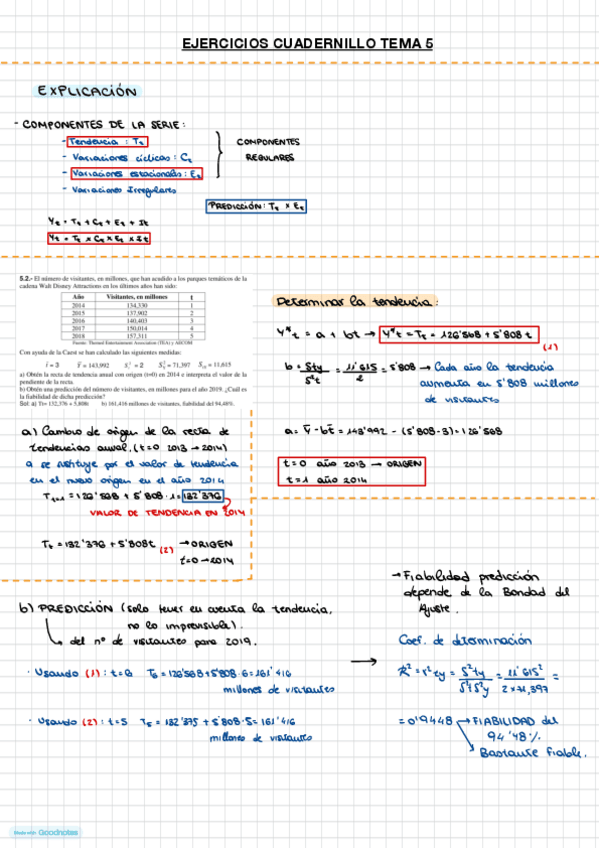 EJERCICIOS CUADERNILLO TEMA 5
EXPLICACIÓN
- COMPONENTES DE LA SERIE:
- Tendencia : Tt
- Variaciones cíclicas : Ct
- Variaciones estacionales : Et
- Variaciones Irregulares
COMPONENTES
REGULARES
PREDICCIÓN: Tt x Et
Yt = Tt + Ct + Et + It
Yt = Tt x Ct x Et x It
5.2.- El número de visitantes, en millones, que han acudido a los parques temáticos de la
cadena Walt Disney Attractions en los últimos años han sido:
Año Visitantes, en millones t
2014 134,330 1
2015 137,902 2
2016 140,403 3
2017 150,014 4
2018 157,311 5
Fuente: Themed Entertainment Association (TEA) y AECOM
Con ayuda de la Caest se han calculado las siguientes medidas:
t̄ = 3 Ȳ = 143,992 S²t = 2 S²Y = 71,397 StY = 11,615
a) Obtén la recta de tendencia anual con origen (t=0) en 2014 e interpreta el valor de la
pendiente de la recta.
b) Obtén una predicción del número de visitantes, en millones para el año 2019. ¿Cuál es
la fiabilidad de dicha predicción?
Sol: a) Tt= 132,376 + 5,808t b) 161,416 millones de visitantes, fiabilidad del 94,48%.
Determinar la tendencia:
Y*t = a + bt → Y*t = Tt = 126'568 + 5'808 t
(1)
b = Sty/S²t = 11'615/2 = 5'808 → Cada año la tendencia
aumenta en 5'808 millones
de visitantes
a = ȳ - bt̄ = 143'992 - (5'808·3) = 126'568
t=0 año 2013 → ORIGEN
t=1 año 2014
a) Cambio de origen de la recta de
tendencias anual, (t=0 2013 → 2014)
a se sustituye por el valor de tendencia
en el nuevo origen en el año 2014
Tt=1 = 126'568 + 5'808·1 = 132'376
VALOR DE TENDENCIA EN 2014
Tt = 132'376 + 5'808t (2) → ORIGEN
t=0 → 2014
b) PREDICCIÓN (solo tener en cuenta la tendencia,
no lo imprevisible).
del nº de visitantes para 2019.
· Usando (1) : t=6 T6 = 126'568 + 5'808·6 = 161'416
millones de visitantes
· Usando (2) : t=5 T5 = 132'375 + 5'808·5 = 161'416
millones de visitantes
→ Fiabilidad predicción
depende de la Bondad del
Ajuste.
Coef. de determinación
R² = r²ty = S²ty/S²tS²y = 11'615²/2x71,397 =
= 0'9448 → FIABILIDAD del
94'48%
Bastante fiable.
Made with Goodnotes